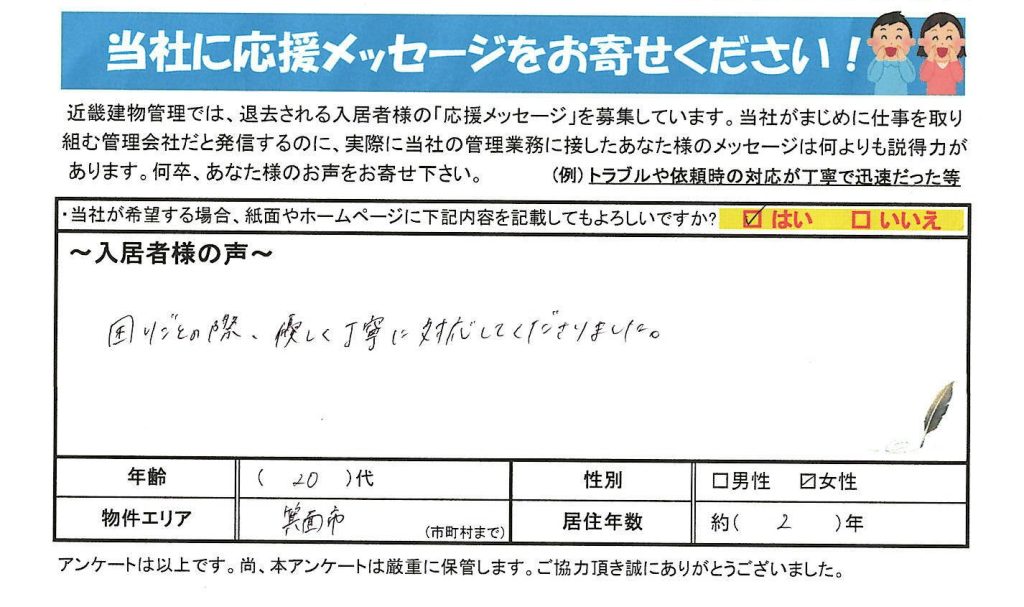 当社に応援メッセージをお寄せください！
近畿建物管理では、退去される入居者様の「応援メッセージ」を募集しています。当社がまじめに仕事を取り
組む管理会社だと発信するのに、実際に当社の管理業務に接したあなた様のメッセージは何よりも説得力が
あります。何卒、あなた様のお声をお寄せ下さい。 （例）トラブルや依頼時の対応が丁寧で迅速だった等
・当社が希望する場合、紙面やホームページに下記内容を記載してもよろしいですか? ☑はい □いいえ
～入居者様の声～
困りごとの際、優しく丁寧に対応してくださりました。
年齢 （ 20 ）代 性別 □男性 ☑女性
物件エリア 箕面市 (市町村まで) 居住年数 約（ 2 ）年
アンケートは以上です。尚、本アンケートは厳重に保管します。ご協力頂き誠にありがとうございました。